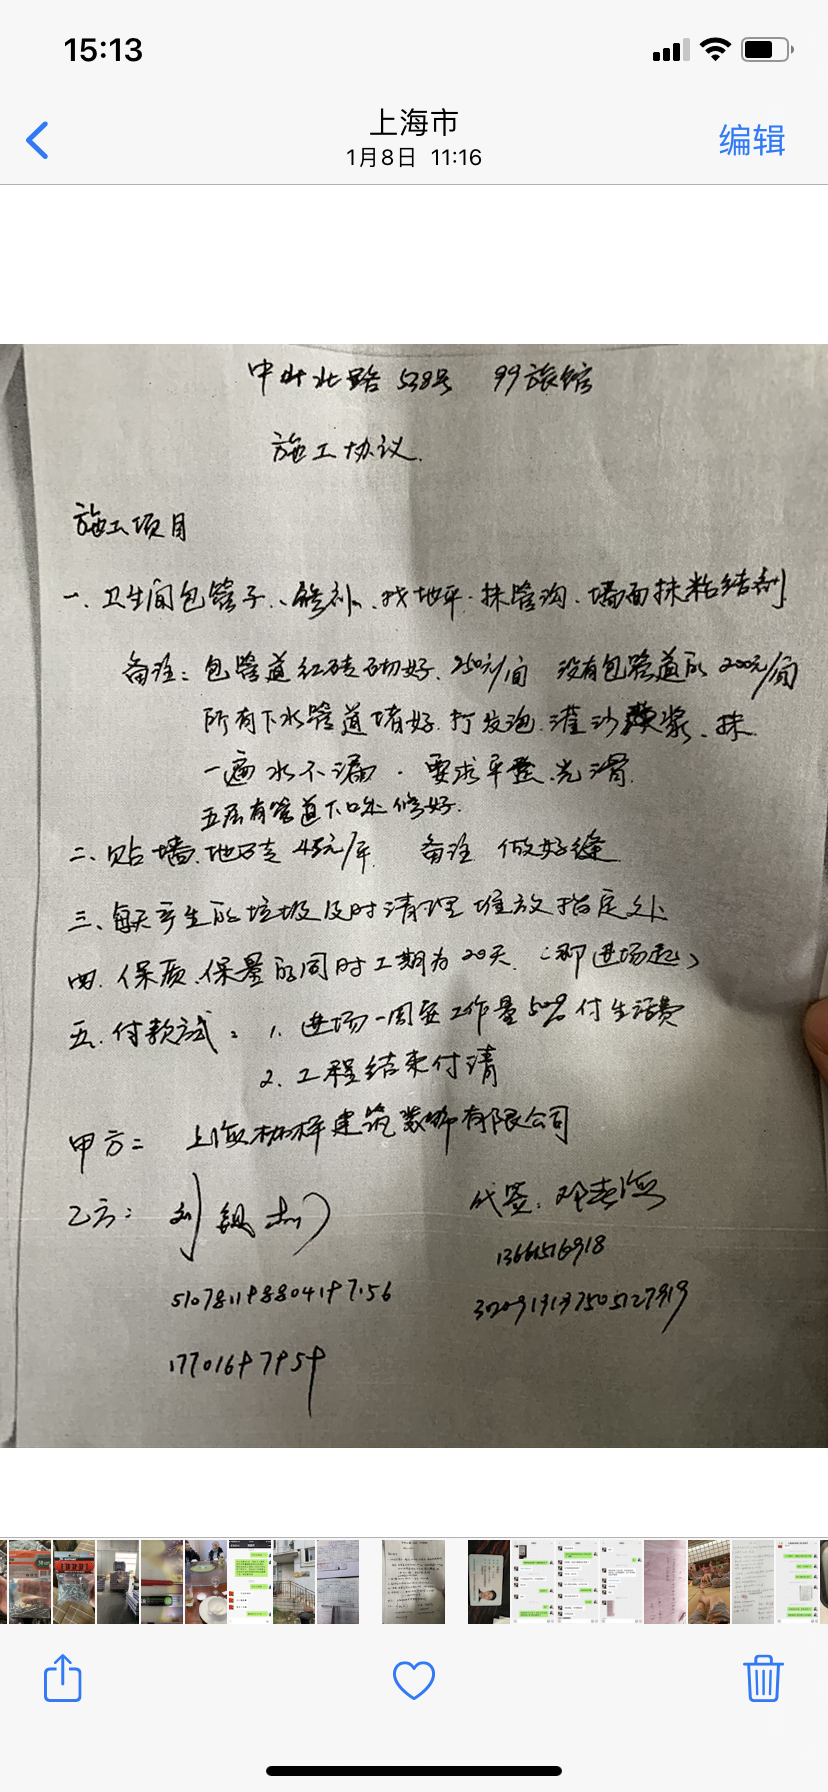 15:13
上海市
1月8日 11:16
编辑
中山北路 538号 99旅馆
施工协议.
施工项目
一、卫生间包管子、修补、找地平、抹管沟、墙面抹粘结剂
备注：包管道红砖砌好、250元/间 没有包管道的 200元/间
所有下水管道堵好.打发泡.灌沙浆、抹
一遍水不漏. 要求平整、光滑.
五层有管道下口处修好.
二、贴墙、地砖 45元/平 备注 做好缝
三、每天产生的垃圾及时清理堆放指定处
四、保质、保量的同时工期为20天.（即进场起）
五、付款方式：1. 进场一周至工作量50%付生活费
2. 工程结束付清
甲方： 上海 建筑装饰有限公司
乙方： 刘
代签：邓
17701697959